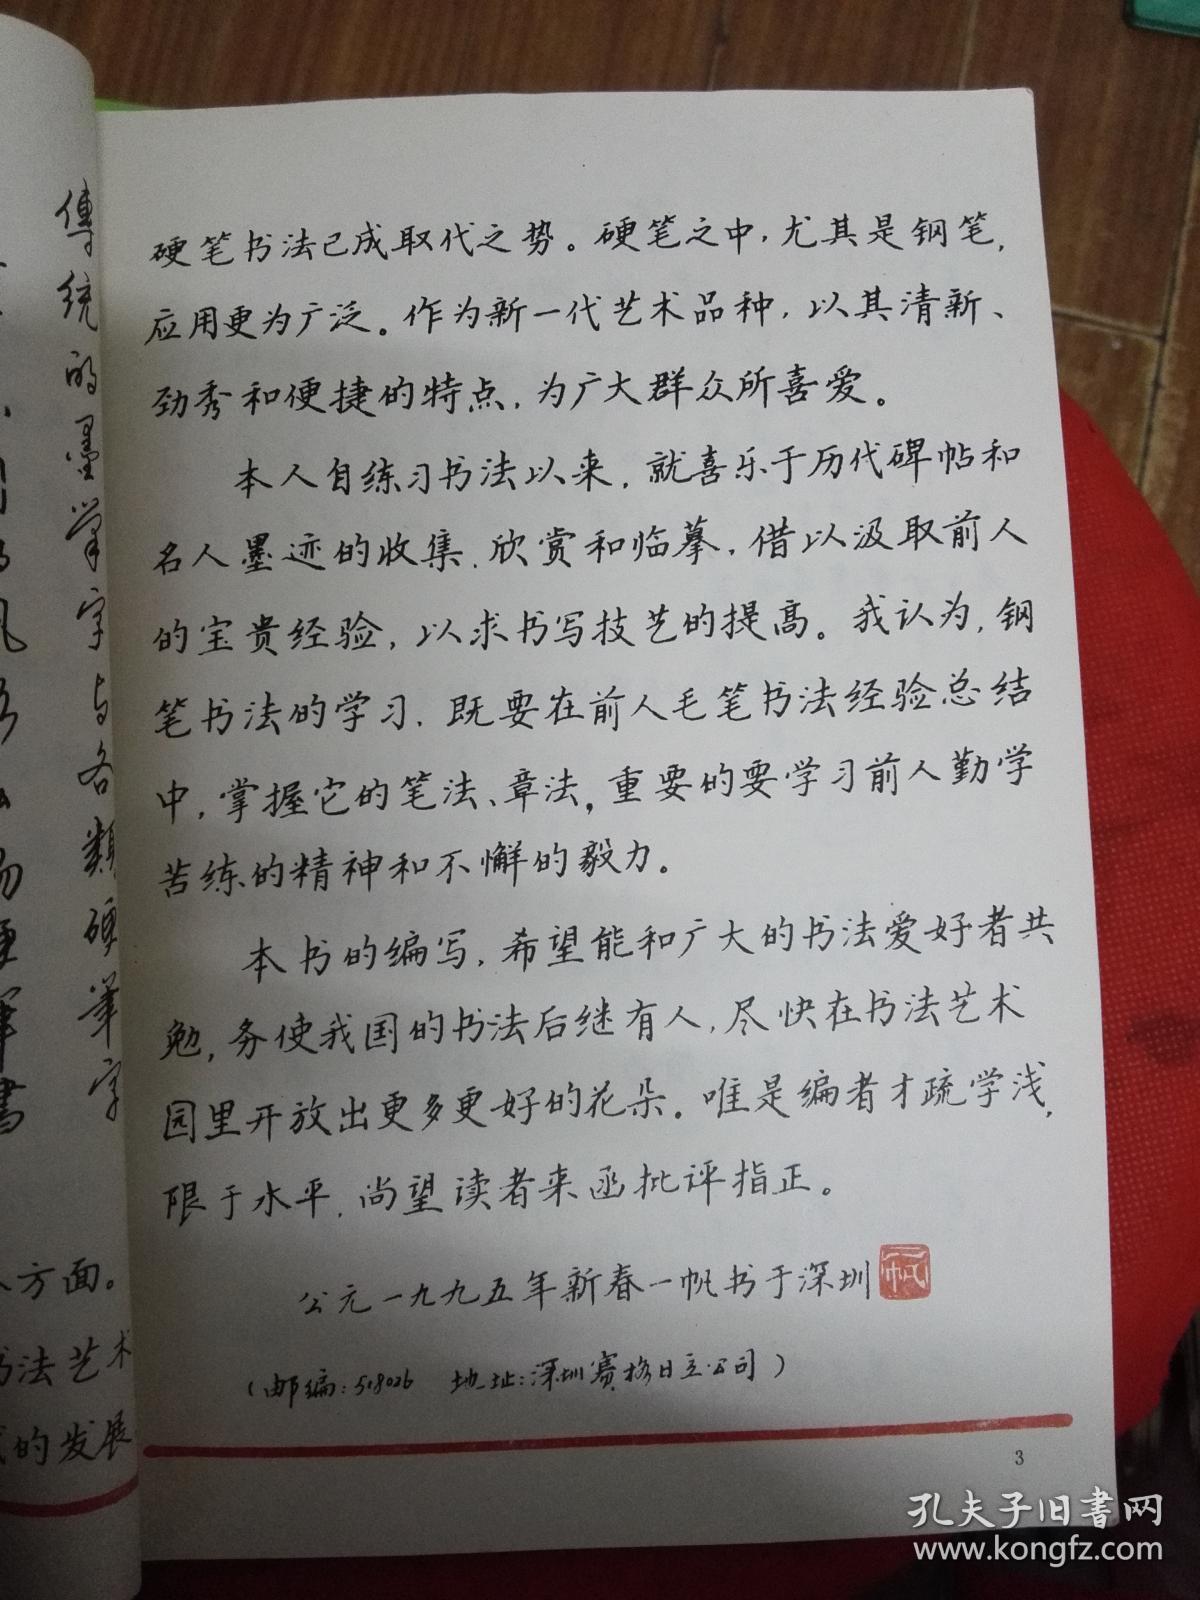 硬笔书法已成取代之势。硬笔之中,尤其是钢笔,
应用更为广泛。作为新一代艺术品种,以其清新、
劲秀和便捷的特点,为广大群众所喜爱。
本人自练习书法以来,就喜乐于历代碑帖和
名人墨迹的收集、欣赏和临摹,借以汲取前人
的宝贵经验,以求书写技艺的提高。我认为,钢
笔书法的学习,既要在前人毛笔书法经验总结
中,掌握它的笔法、章法,重要的要学习前人勤学
苦练的精神和不懈的毅力。
本书的编写,希望能和广大的书法爱好者共
勉,务使我国的书法后继有人,尽快在书法艺术
园里开放出更多更好的花朵。唯是编者才疏学浅,
限于水平,尚望读者来函批评指正。
公元一九九五年新春一帆书于深圳
一帆
(邮编:518026 地址:深圳赛格日立公司)
3
傳统的墨筆字与各類硬筆字
方面。
书法艺术
的发展
孔夫子旧書网
www.kongfz.com